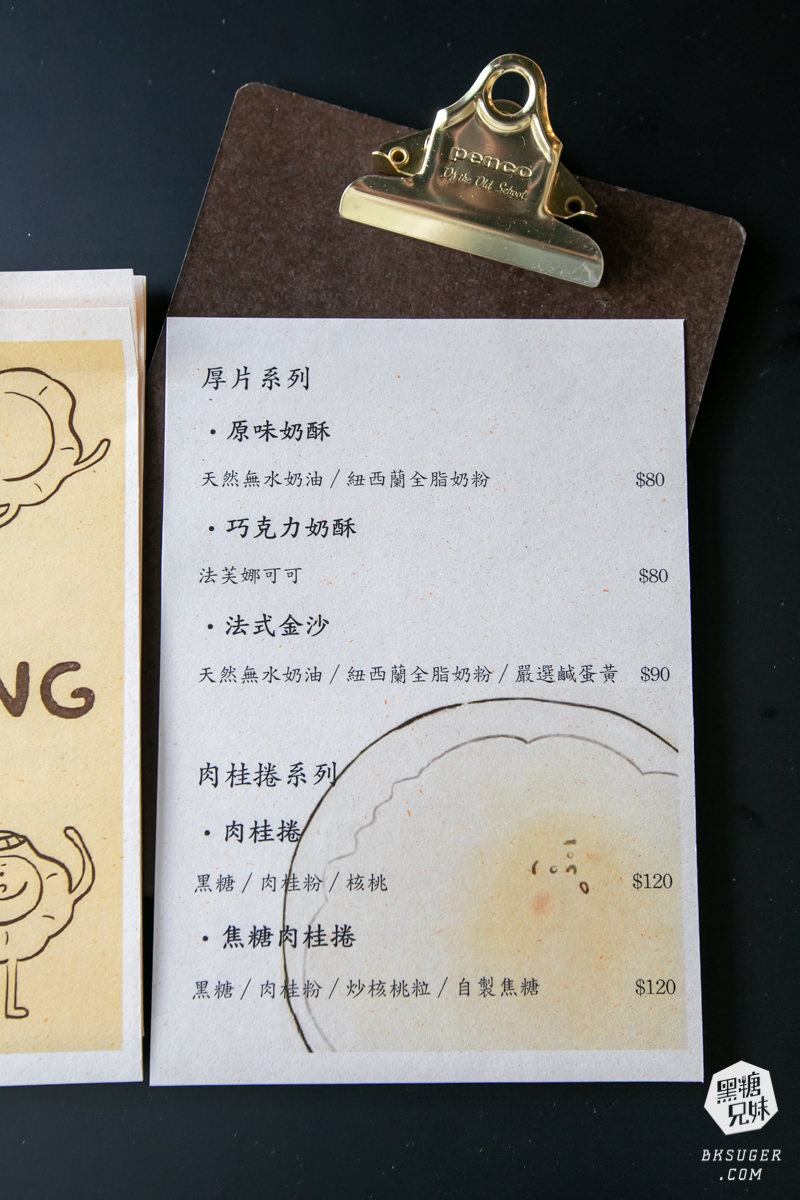 penco
Of the Old School
厚片系列
・原味奶酥
天然無水奶油 / 紐西蘭全脂奶粉 $80
・巧克力奶酥
法芙娜可可 $80
・法式金沙
天然無水奶油 / 紐西蘭全脂奶粉 / 嚴選鹹蛋黃 $90
肉桂捲系列
・肉桂捲
黑糖 / 肉桂粉 / 核桃 $120
・焦糖肉桂捲
黑糖 / 肉桂粉 / 炒核桃粒 / 自製焦糖 $120
NG
黑糖
兄妹
BKSUGER
.COM